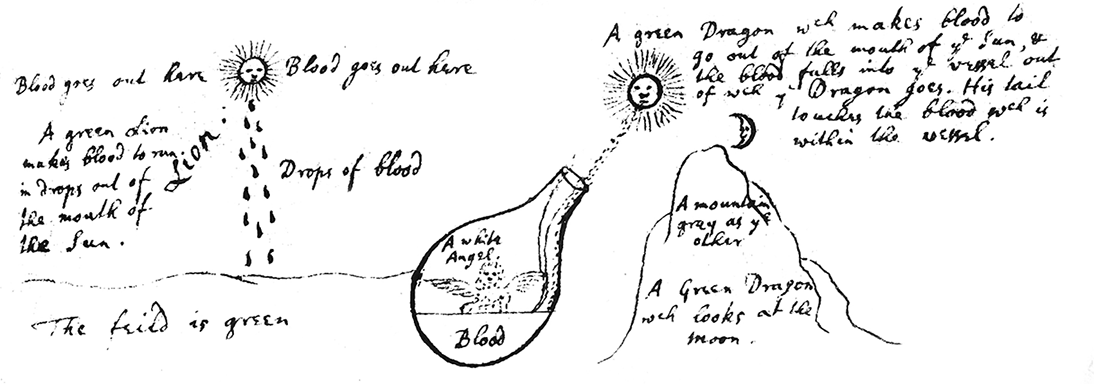 Blood goes out here
Blood goes out here
A green Lion
makes blood to run
in drops out of
the mouth of
the Sun.
Lion
Drops of blood
The feild is green
A white
Angel.
Blood
A green Dragon wch makes blood to
go out of the mouth of ye Sun, &
the blood falls into ye vessel out
of wch ye Dragon goes. His tail
touches the blood wch is
within the vessel.
A mountain
gray as ye
other
A Green Dragon
wch looks at the
moon.